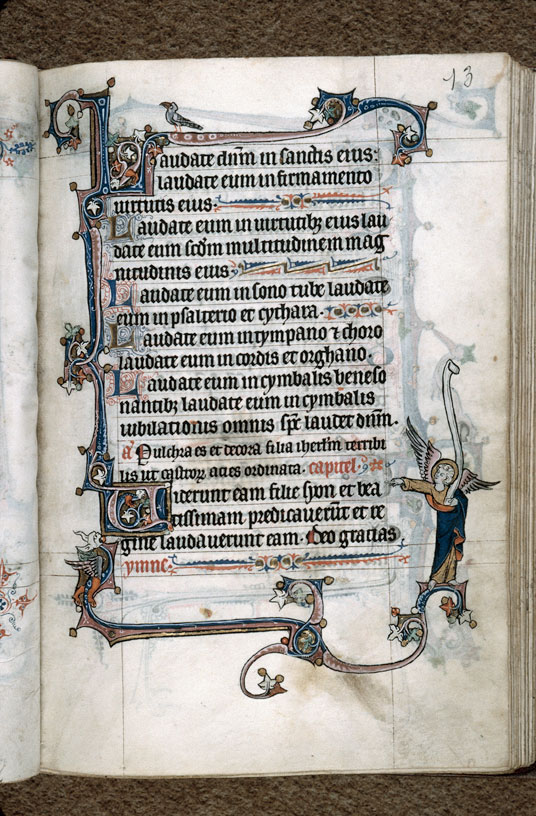 13
Laudate dnm in sanctis eius:
laudate eum in firmamento
uirtutis eius.
Laudate eum in uirtutibz eius lau
date eum scdm multitudinem mag
nitudinis eius.
Laudate eum in sono tube laudate
eum in psalterio et cythara.
Laudate eum in tympano ⁊ choro
laudate eum in cordis et orghano.
Laudate eum in cymbalis beneso
nantibz laudate eum in cymbalis
iubilationis omnis spc laudet dnm.
a Pulchra es et decora filia iherlm terribi
lis ut castroz acies ordinata. capitel.
Uiderunt eam filie syon et bea
tissimam predicauerūt et re
gine laudauerunt eam. Deo gracias.
ymne.